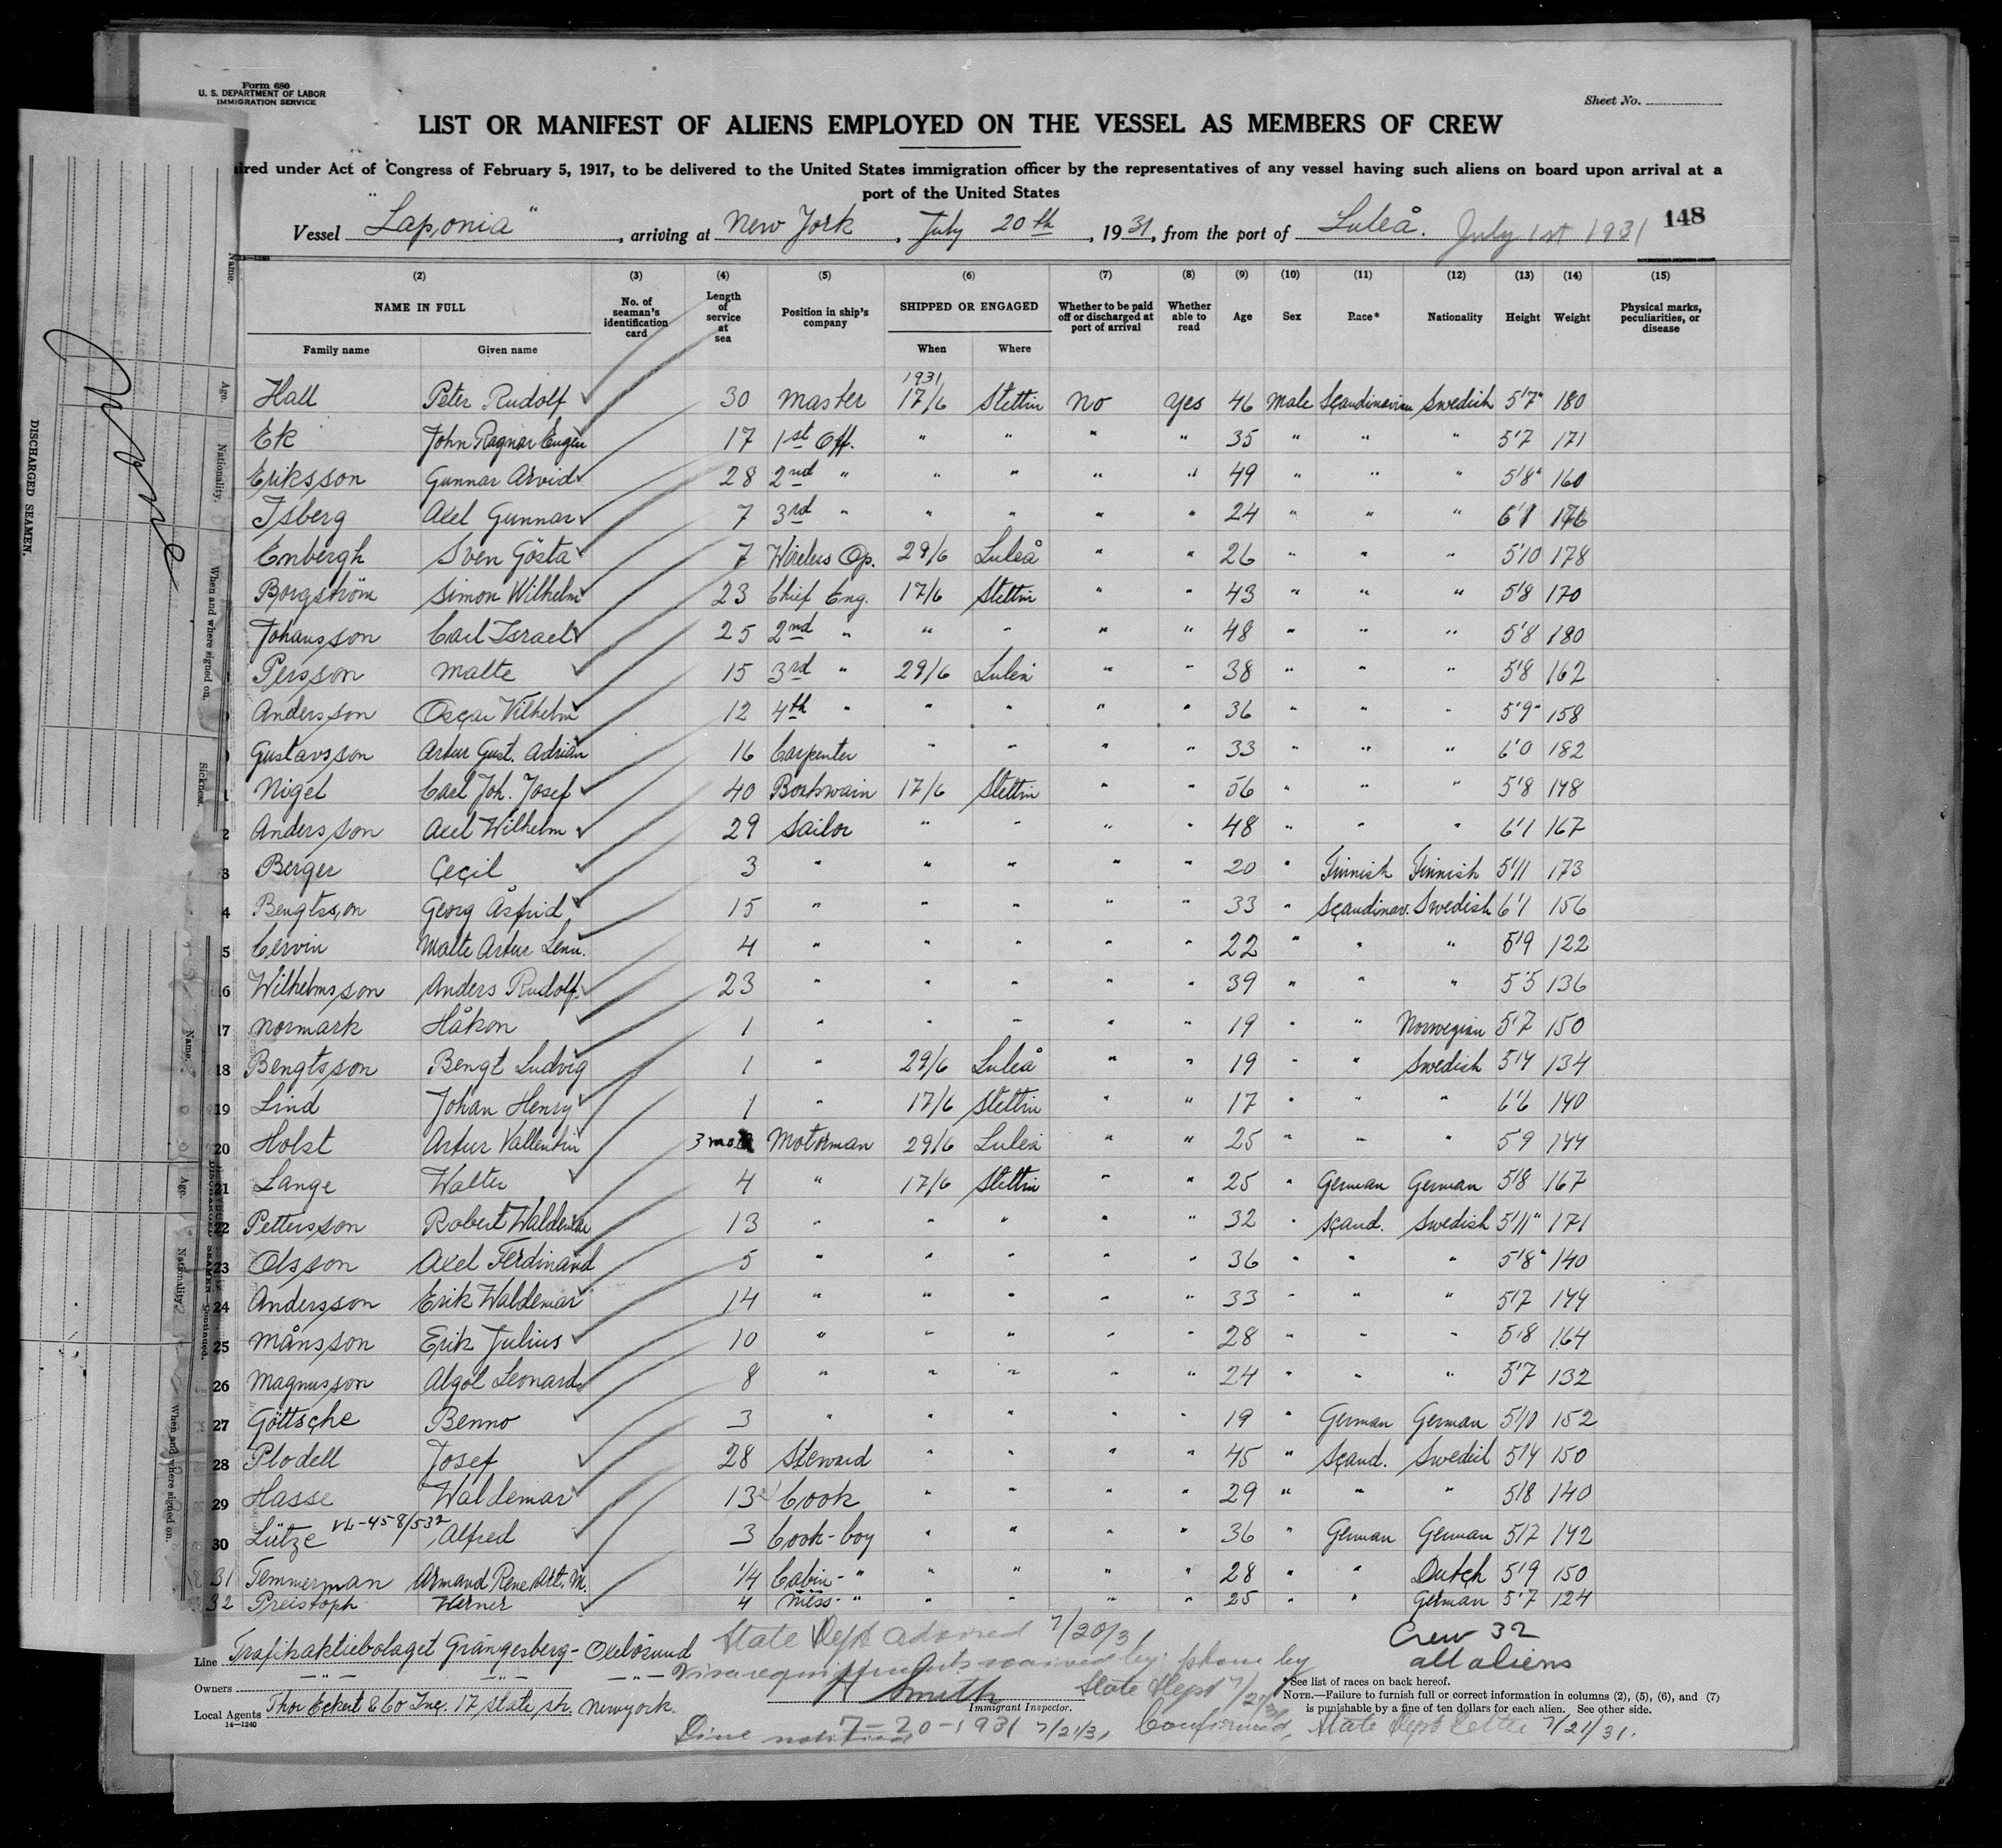 Form 680
U. S. DEPARTMENT OF LABOR
IMMIGRATION SERVICE
Sheet No.
LIST OR MANIFEST OF ALIENS EMPLOYED ON THE VESSEL AS MEMBERS OF CREW
ired under Act of Congress of February 5, 1917, to be delivered to the United States immigration officer by the representatives of any vessel having such aliens on board upon arrival at a
port of the United States
Vessel "Laponia", arriving at New York, July 20th, 1931, from the port of Luleå. July 1st 1931 148
(2) (3) (4) (5) (6) (7) (8) (9) (10) (11) (12) (13) (14) (15)
NAME IN FULL No. of seaman's identification card Length of service at sea Position in ship's company SHIPPED OR ENGAGED Whether to be paid off or discharged at port of arrival Whether able to read Age Sex Race* Nationality Height Weight Physical marks, peculiarities, or disease
Family name Given name When Where
1931
Hall Peter Rudolf 30 Master 17/6 Stettin No Yes 46 Male Scandinavian Swedish 5'7" 180
Ek John Ragnar Eugen 17 1st Off. " " " " 35 " " " 5'7 171
Eriksson Gunnar Arvid 28 2nd " " " " " 49 " " " 5'8" 160
Isberg Axel Gunnar 7 3rd " " " " " 24 " " " 6'1 176
Enbergh Sven Gösta 7 Wireless Op. 29/6 Luleå " " 26 " " " 5'10 178
Borgström Simon Wilhelm 23 Chief Eng. 17/6 Stettin " " 43 " " " 5'8 170
Johansson Carl Israel 25 2nd " " " " " 48 " " " 5'8 180
Persson Malte 15 3rd " 29/6 Luleå " " 38 " " " 5'8 162
Andersson Oscar Vilhelm 12 4th " " " " " 36 " " " 5'9" 158
Gustavsson Artur Gust. Adrian 16 Carpenter " " " " 33 " " " 6'0 182
Nigel Carl Joh. Josef 40 Boatswain 17/6 Stettin " " 56 " " " 5'8 148
2 Andersson Axel Wilhelm 29 Sailor " " " " 48 " " " 6'1 167
3 Berger Cecil 3 " " " " " 20 " Finnish Finnish 5'11 173
4 Bengtsson Georg Åsfrid 15 " " " " " 33 " Scandinav. Swedish 6'1 156
5 Cervin Malte Artur Lenn. 4 " " " " " 22 " " " 5'9 122
16 Wilhelmsson Anders Rudolf 23 " " " " " 39 " " " 5'5 136
17 Normark Håkon 1 " " " " " 19 " " Norwegian 5'7 150
18 Bengtsson Bengt Ludvig 1 " 29/6 Luleå " " 19 " " Swedish 5'4 134
19 Lind Johan Henry 1 " 17/6 Stettin " " 17 " " " 6'6 140
20 Holst Artur Vallentin 3 mo Motorman 29/6 Luleå " " 25 " " " 5'9 144
21 Lange Walter 4 " 17/6 Stettin " " 25 " German German 5'8 167
22 Pettersson Robert Waldemar 13 " " " " " 32 " Scand. Swedish 5'11" 171
23 Olsson Axel Ferdinand 5 " " " " " 36 " " " 5'8" 140
24 Andersson Erik Waldemar 14 " " " " " 33 " " " 5'7 144
25 Månsson Erik Julius 10 " " " " " 28 " " " 5'8 164
26 Magnusson Algol Leonard 8 " " " " " 24 " " " 5'7 132
27 Göttsche Benno 3 " " " " " 19 " German German 5'10 152
28 Plodell Josef 28 Steward " " " " 45 " Scand. Swedish 5'4 150
29 Hasse Waldemar 13 Cook " " " " 29 " " " 5'8 140
30 Lütze VL-458/532 Alfred 3 Cook-boy " " " " 36 " German German 5'7 142
31 Temmerman Armand Rene Art. M. 1/4 Cabin-" " " " " 28 " " Dutch 5'9 150
32 Preistoph Werner 4 Mess-" " " " " 25 " " German 5'7 124
State Dept advised 7/20/31
Crew 32
all aliens
Line Trafikaktiebolaget Grängesberg-Oxelösund
Visa requirements waived by phone by State Dept
Owners
H Smith
Immigrant Inspector.
*See list of races on back hereof.
NOTE.—Failure to furnish full or correct information in columns (2), (5), (6), and (7)
is punishable by a fine of ten dollars for each alien. See other side.
Local Agents Thor Eckert & Co Inc. 17 State str. New York.
14—1240
7-20-1931
Line notified 7/21/31 Confirmed, State Dept Letter 7/21/31.
DISCHARGED SEAMEN.
Name.
Age.
Nationality.
When and where signed on.
Sickness.
DISCHARGED SEAMEN—Continued.
Name.
Age.
Nationality.
When and where signed on.